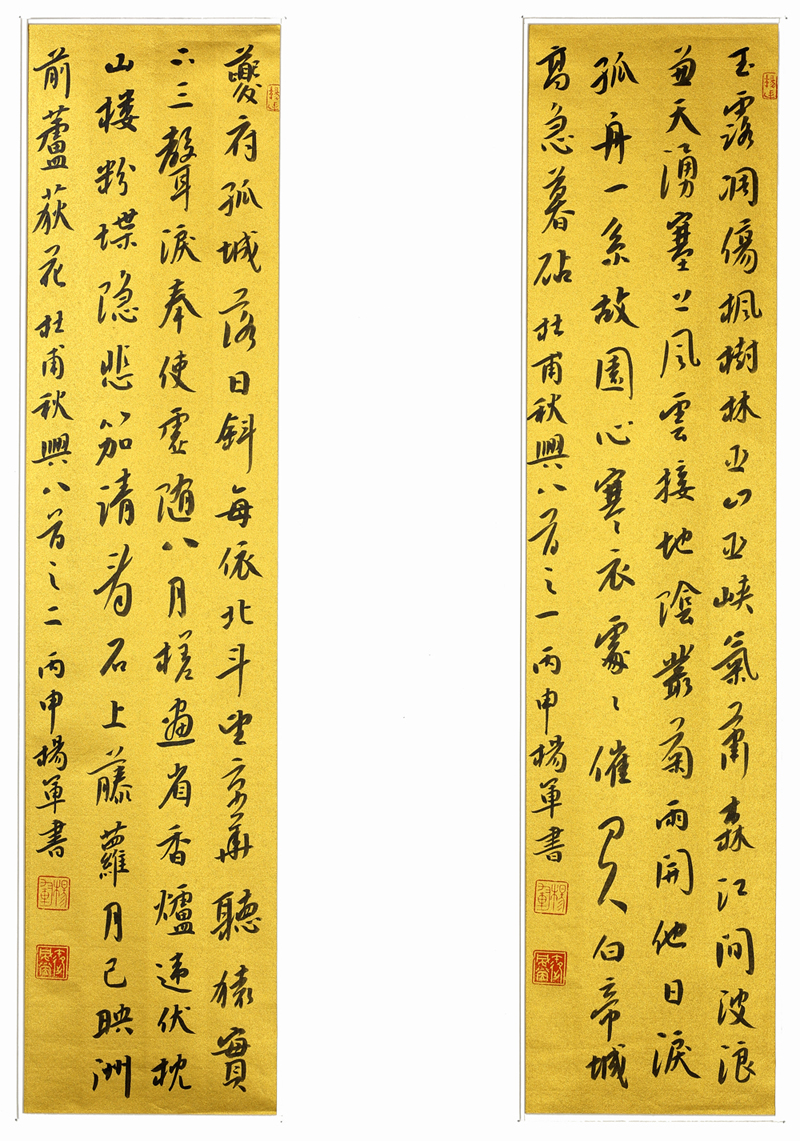 玉露凋傷楓樹林巫山巫峽氣蕭森江間波浪
兼天湧塞上風雲接地陰叢菊兩開他日淚
孤舟一系故園心寒衣處〻催刀尺白帝城
高急暮砧 杜甫秋興八首之一 丙申楊軍書
楊軍
夔府孤城落日斜每依北斗望京華聽猿實
下三聲淚奉使虛随八月槎畫省香爐違伏枕
山樓粉堞隐悲笳請看石上藤蘿月已映洲
前蘆荻花 杜甫秋興八首之二 丙申楊軍書
楊軍